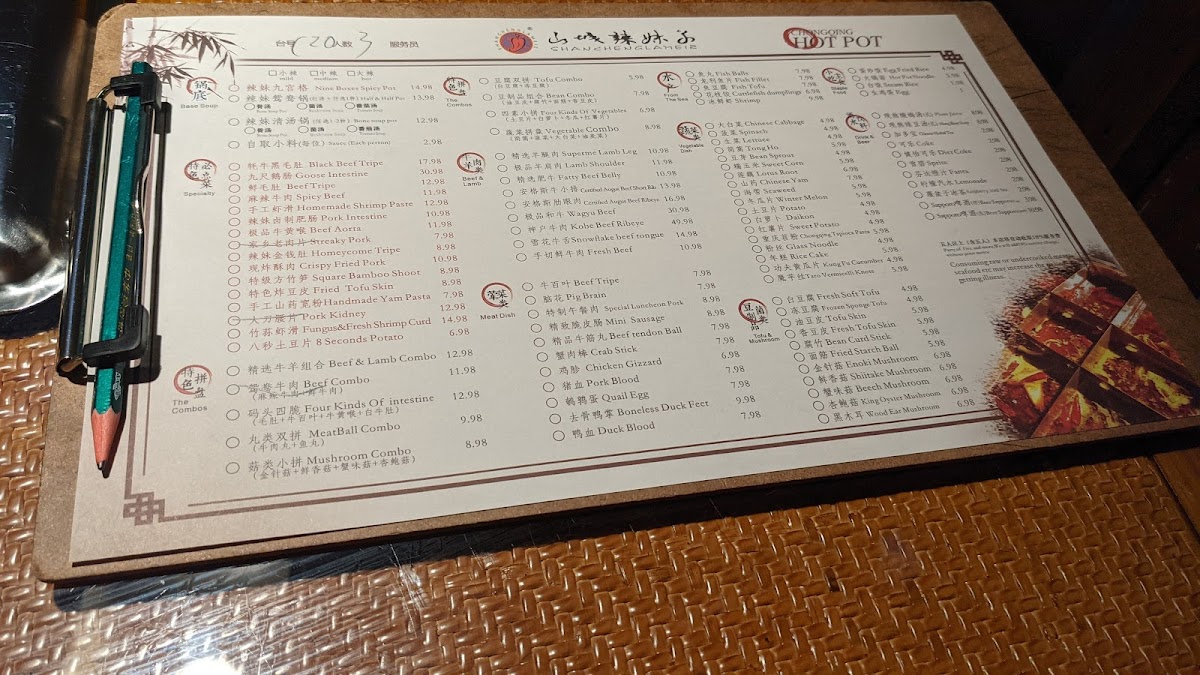 台号 C20 人数 3 服务员
山城辣妹子
SHANCHENGLAMEIZ
CHONGQING
HOT POT
锅底
Base Soup
小辣 中辣 火辣
mild medium hot
辣妹九宫格 Nine Boxes Spicy Pot 14.98
辣妹鸳鸯锅 Half & Half Pot 13.98
骨汤 菌汤 番茄汤
辣妹清汤锅 Bone soup pot 12.98
骨汤 菌汤 番茄汤
自取小料(每位) Sauce (Each person) 2.98
特色必点菜
Specialty
牦牛黑毛肚 Black Beef Tripe 17.98
九尺鹅肠 Goose Intestine 30.98
鲜毛肚 Beef Tripe 12.98
麻辣牛肉 Spicy Beef 11.98
手工虾滑 Homemade Shrimp Paste 12.98
辣妹卤制肥肠 Pork Intestine 10.98
极品牛黄喉 Beef Aorta 11.98
Streaky Pork 7.98
辣妹金钱肚 Honeycome Tripe 8.98
现炸酥肉 Crispy Fried Pork 10.98
特级方竹笋 Square Bamboo Shoot 8.98
特色炸豆皮 Fried Tofu Skin 8.98
手工山药宽粉 Handmade Yam Pasta 7.98
大刀腰片 Pork Kidney 12.98
竹荪虾滑 Fungus&Fresh Shrimp Curd 14.98
八秒土豆片 8 Seconds Potato 6.98
特色拼盘
The Combos
精选牛羊组合 Beef & Lamb Combo 12.98
鸳鸯牛肉 Beef Combo 11.98
(麻辣牛肉+鲜牛肉)
码头四脆 Four Kinds Of intestine 12.98
(毛肚+牛百叶+牛黄喉+白牛肚)
丸类双拼 MeatBall Combo 9.98
(牛肉丸+鱼丸)
菇类小拼 Mushroom Combo 8.98
(金针菇+鲜香菇+蟹味菇+杏鲍菇)
特色拼盘
The Combos
豆腐双拼 Tofu Combo 5.98
(白豆腐+冻豆腐)
豆制品组合 Bean Combo 7.98
因素小拼 Four Kinds Of Vegetables 6.98
(土豆片+白萝卜+冬瓜+红薯片)
蔬菜拼盘 Vegetable Combo 8.98
牛羊肉类
Beef & Lamb
精选羊腿肉 Superme Lamb Leg 10.98
极品羊肩肉 Lamb Shoulder 11.98
精选肥牛 Fatty Beef Belly 10.98
安格斯牛小排 Certified Angus Beef Short Rib 13.98
安格斯肋眼肉 Certified Angus Beef Ribeye 16.98
极品和牛 Wagyu Beef 30.98
神户牛肉 Kobe Beef Ribeye 49.98
雪花牛舌 Snowflake beef tongue 14.98
手切鲜牛肉 Fresh Beef 10.98
荤菜类
Meat Dish
牛百叶 Beef Tripe 7.98
脑花 Pig Brain 7.98
特制午餐肉 Special Luncheon Pork 8.98
精致脆皮肠 Mini Sausage 8.98
精品牛筋丸 Beef tendon Ball 7.98
蟹肉棒 Crab Stick
鸡胗 Chicken Gizzard 6.98
猪血 Pork Blood 7.98
鹌鹑蛋 Quail Egg 7.98
去骨鸭掌 Boneless Duck Feet 9.98
鸭血 Duck Blood 7.98
From The Sea
鱼丸 Fish Balls 7.98
龙利鱼片 Fish Fillet 7.98
鱼豆腐 Fish Tofu 7.98
花枝饺 Cuttlefish dumplings 6.98
冰鲜虾 Shrimp 9.98
蔬菜类
Vegetable Dish
大白菜 Chinese Cabbage 4.98
菠菜 Spinach 4.98
生菜 Lettuce 4.98
茼蒿 Tong Ho 5.98
豆芽 Bean Sprout 4.98
糯玉米 Sweet Corn 5.98
莲藕 Lotus Root 6.98
山药 Chinese Yam 5.98
海带 Seaweed 5.98
冬瓜片 Winter Melon 4.98
土豆片 Potato 4.98
白萝卜 Daikon 4.98
红薯片 Sweet Potato 4.98
重庆苕粉 Chongqing Tapioca Pasta 5.98
粉丝 Glass Noodle 4.98
年糕 Rice Cake 5.98
功夫黄瓜片 Kung Fu Cucumber 4.98
魔芋丝 Taro Vermicelli Knots 5.98
豆制品菌菇类
Tofu & Mushroom
白豆腐 Fresh Soft Tofu 4.98
冻豆腐 Frozen Sponge Tofu 4.98
油豆皮 Tofu Skin 5.98
香豆皮 Fresh Tofu Skin 5.98
腐竹 Bean Curd Stick 5.98
面筋 Fried Starch Ball 5.98
金针菇 Enoki Mushroom 6.98
鲜香菇 Shiitake Mushroom 6.98
蟹味菇 Beech Mushroom 6.98
杏鲍菇 King Oyster Mushroom 6.98
黑木耳 Wood Ear Mushroom 6.98
Staple Food
蛋炒饭 Egg Fried Rice 4.98
火锅面 Hot Pot Noodle 3.98
白饭 Steam Rice
生鸡蛋 Egg
Drink & Beer
加多宝
可乐 Coke
健怡可乐 Diet Coke 2.98
雪碧 Sprite
芬达橙汁 Fanta 2.98
柠檬汽水 Lemonade 2.98
Sapporo啤酒
Sapporo啤酒
Consuming raw or undercooked meats, seafood etc may increase the risk of getting illness.